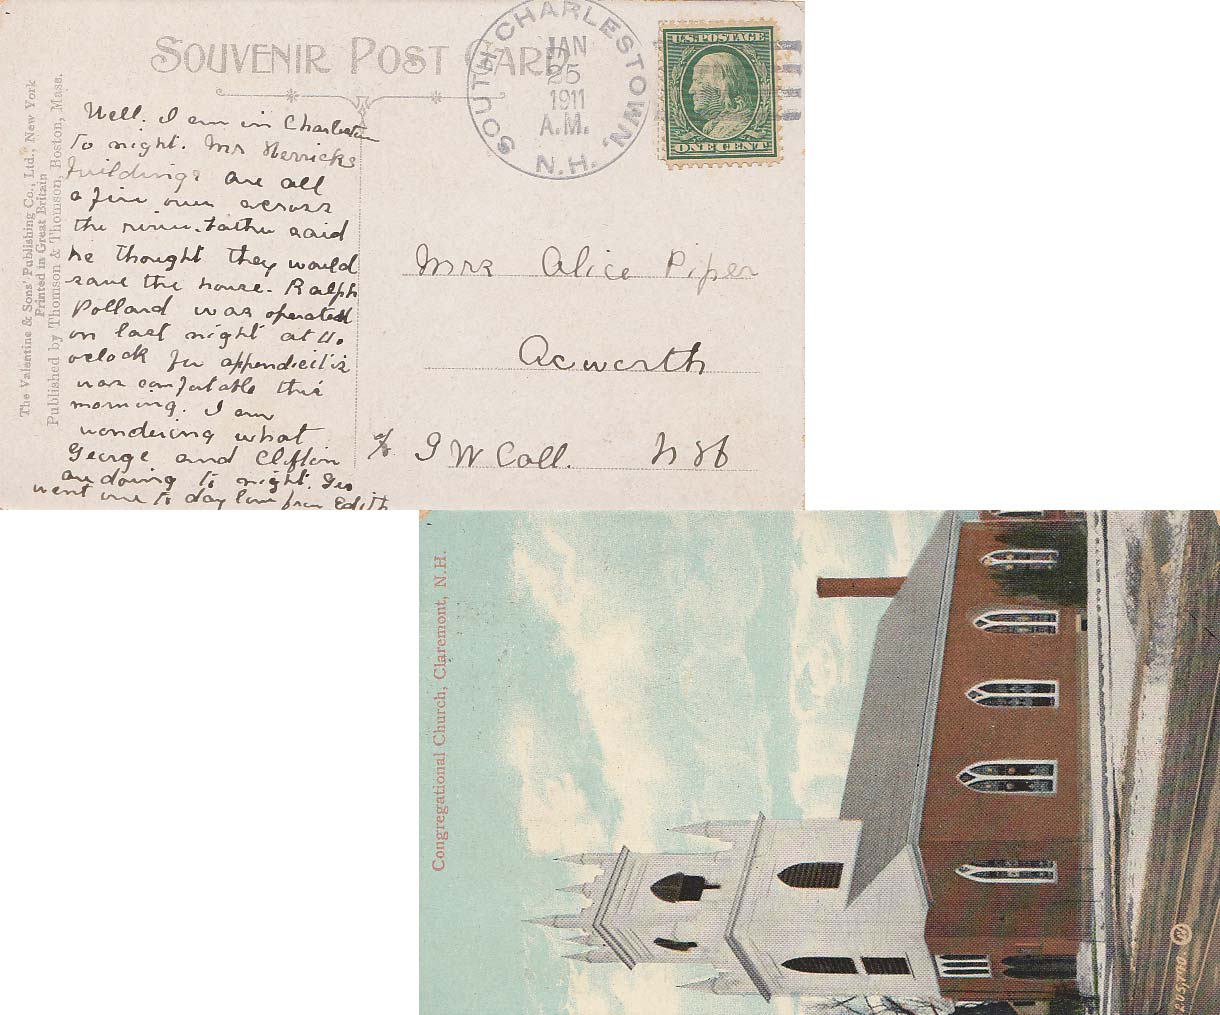 SOUVENIR POST CARD
SOUTH CHARLESTOWN, N.H.
JAN
25
1911
A.M.
U.S. POSTAGE
ONE CENT
The Valentine & Sons' Publishing Co., Ltd., New York
Printed in Great Britain
Published by Thomson & Thomson, Boston, Mass.
Well. I am in Charlestown
to night. Mr Herricks
buildings are all
a fire over across
the river. Father said
he thought they would
save the house. Ralph
Pollard was operated
on last night at 11.
oclock for appendicitis
was comfortable this
morning. I am
wondering what
George and Clifton
are doing to night. Geo
went over to day love from Edith
Mrs Alice Piper
Acworth
c/o G W Call. N H
Congregational Church, Claremont, N.H.